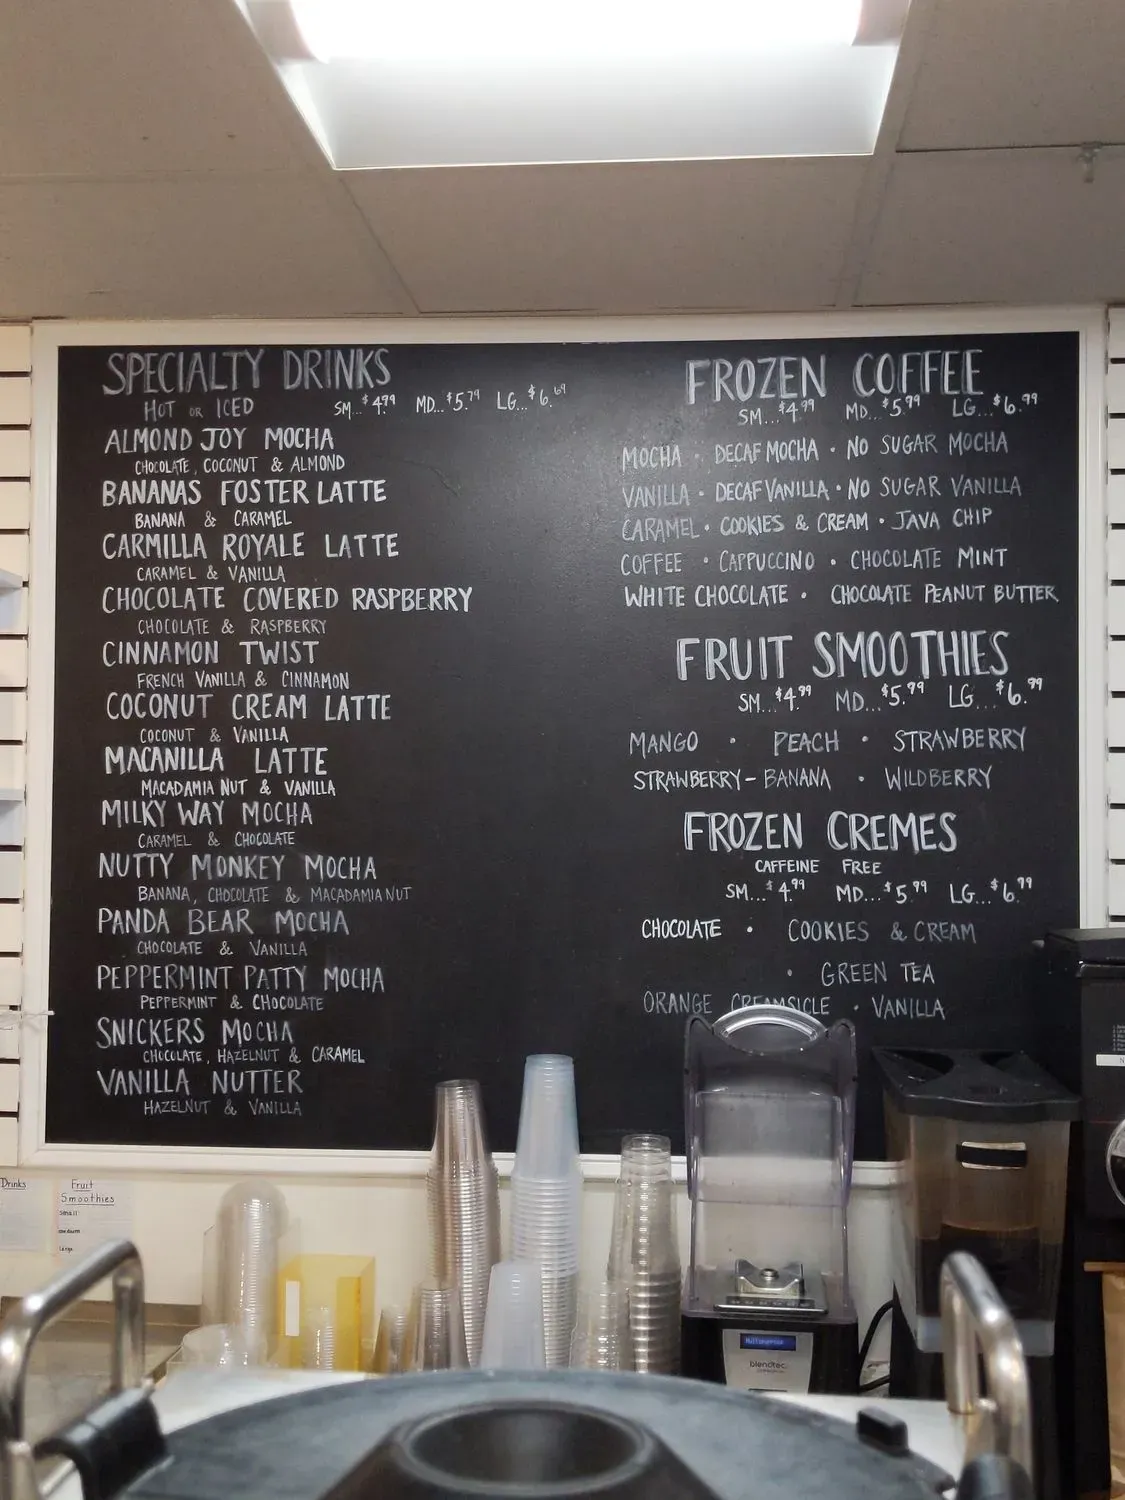 SPECIALTY DRINKS
HOT OR ICED SM...$4.99 MD...$5.79 LG...$6.69
ALMOND JOY MOCHA
CHOCOLATE, COCONUT & ALMOND
BANANAS FOSTER LATTE
BANANA & CARAMEL
CARMILLA ROYALE LATTE
CARAMEL & VANILLA
CHOCOLATE COVERED RASPBERRY
CHOCOLATE & RASPBERRY
CINNAMON TWIST
FRENCH VANILLA & CINNAMON
COCONUT CREAM LATTE
COCONUT & VANILLA
MACANILLA LATTE
MACADAMIA NUT & VANILLA
MILKY WAY MOCHA
CARAMEL & CHOCOLATE
NUTTY MONKEY MOCHA
BANANA, CHOCOLATE & MACADAMIA NUT
PANDA BEAR MOCHA
CHOCOLATE & VANILLA
PEPPERMINT PATTY MOCHA
PEPPERMINT & CHOCOLATE
SNICKERS MOCHA
CHOCOLATE, HAZELNUT & CARAMEL
VANILLA NUTTER
HAZELNUT & VANILLA
FROZEN COFFEE
SM...$4.99 MD...$5.99 LG...$6.99
MOCHA · DECAF MOCHA · NO SUGAR MOCHA
VANILLA · DECAF VANILLA · NO SUGAR VANILLA
CARAMEL · COOKIES & CREAM · JAVA CHIP
COFFEE · CAPPUCCINO · CHOCOLATE MINT
WHITE CHOCOLATE · CHOCOLATE PEANUT BUTTER
FRUIT SMOOTHIES
SM...$4.99 MD...$5.99 LG...$6.99
MANGO · PEACH · STRAWBERRY
STRAWBERRY-BANANA · WILDBERRY
FROZEN CREMES
CAFFEINE FREE
SM...$4.99 MD...$5.99 LG...$6.99
CHOCOLATE · COOKIES & CREAM
· GREEN TEA
ORANGE CREAMSICLE · VANILLA
Drinks
Fruit
Smoothies
Small
medium
Large
blendtec